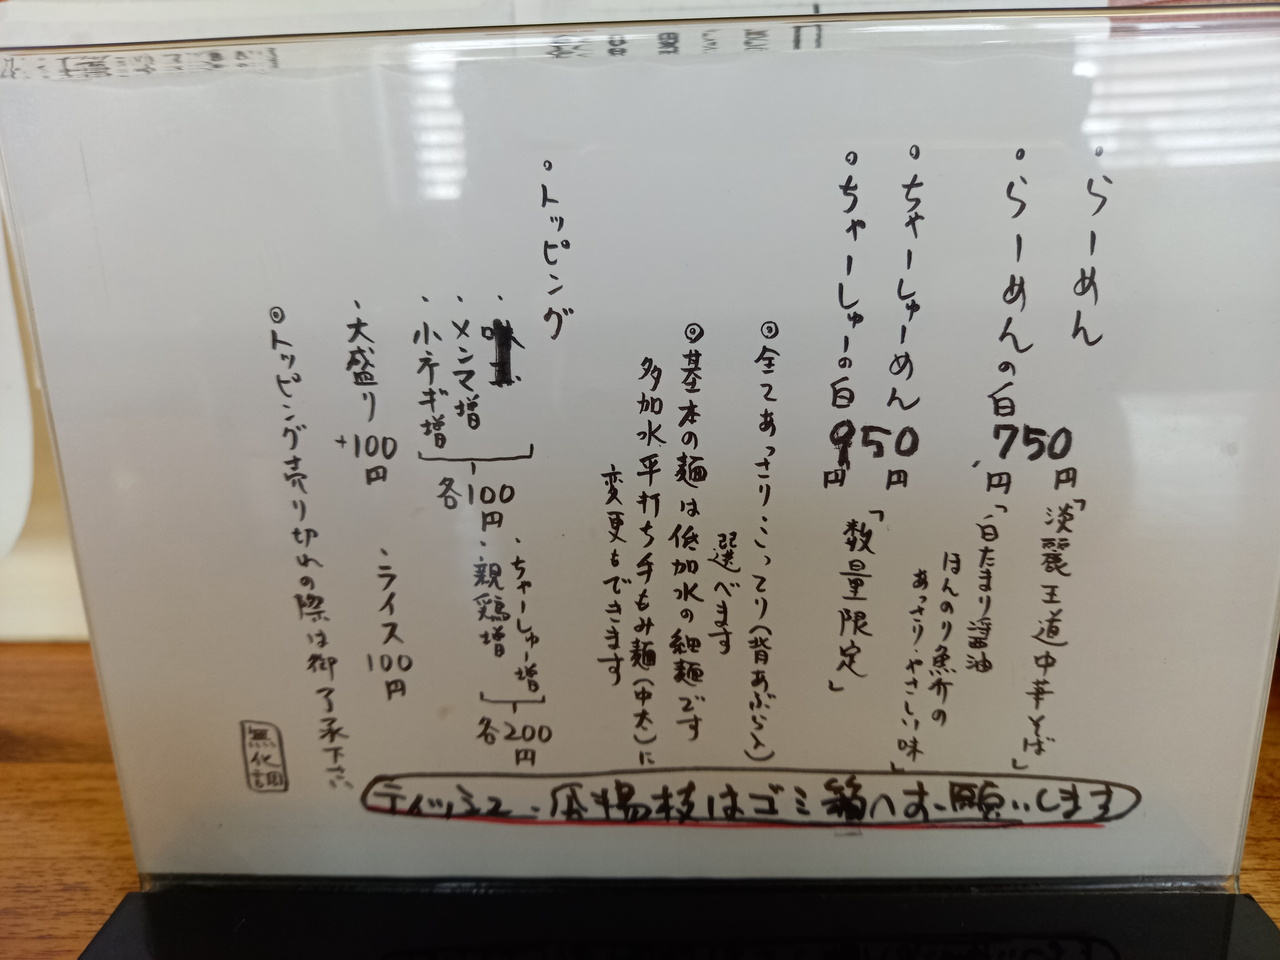 ・らーめん 750円「淡麗王道中華そば」
・らーめんの白 750円「白たまり醤油
ほんのり魚介の
あっさり・やさしい味」
・ちゃーしゅーめん 950円
・ちゃーしゅーの白 950円「数量限定」
◎全てあっさり・こってり(背あぶら入)
選べます
◎基本の麺は低加水の細麺です
多加水平打ち手もみ麺(中太)に
変更もできます
・トッピング
・味
・メンマ増
・小ネギ増
各100円
・ちゃーしゅー増
・親鶏増
各200円
・大盛り +100円
・ライス 100円
◎トッピング売り切れの際は御了承下さい
無化調
ティッシュ・爪楊枝はゴミ箱へお願いします